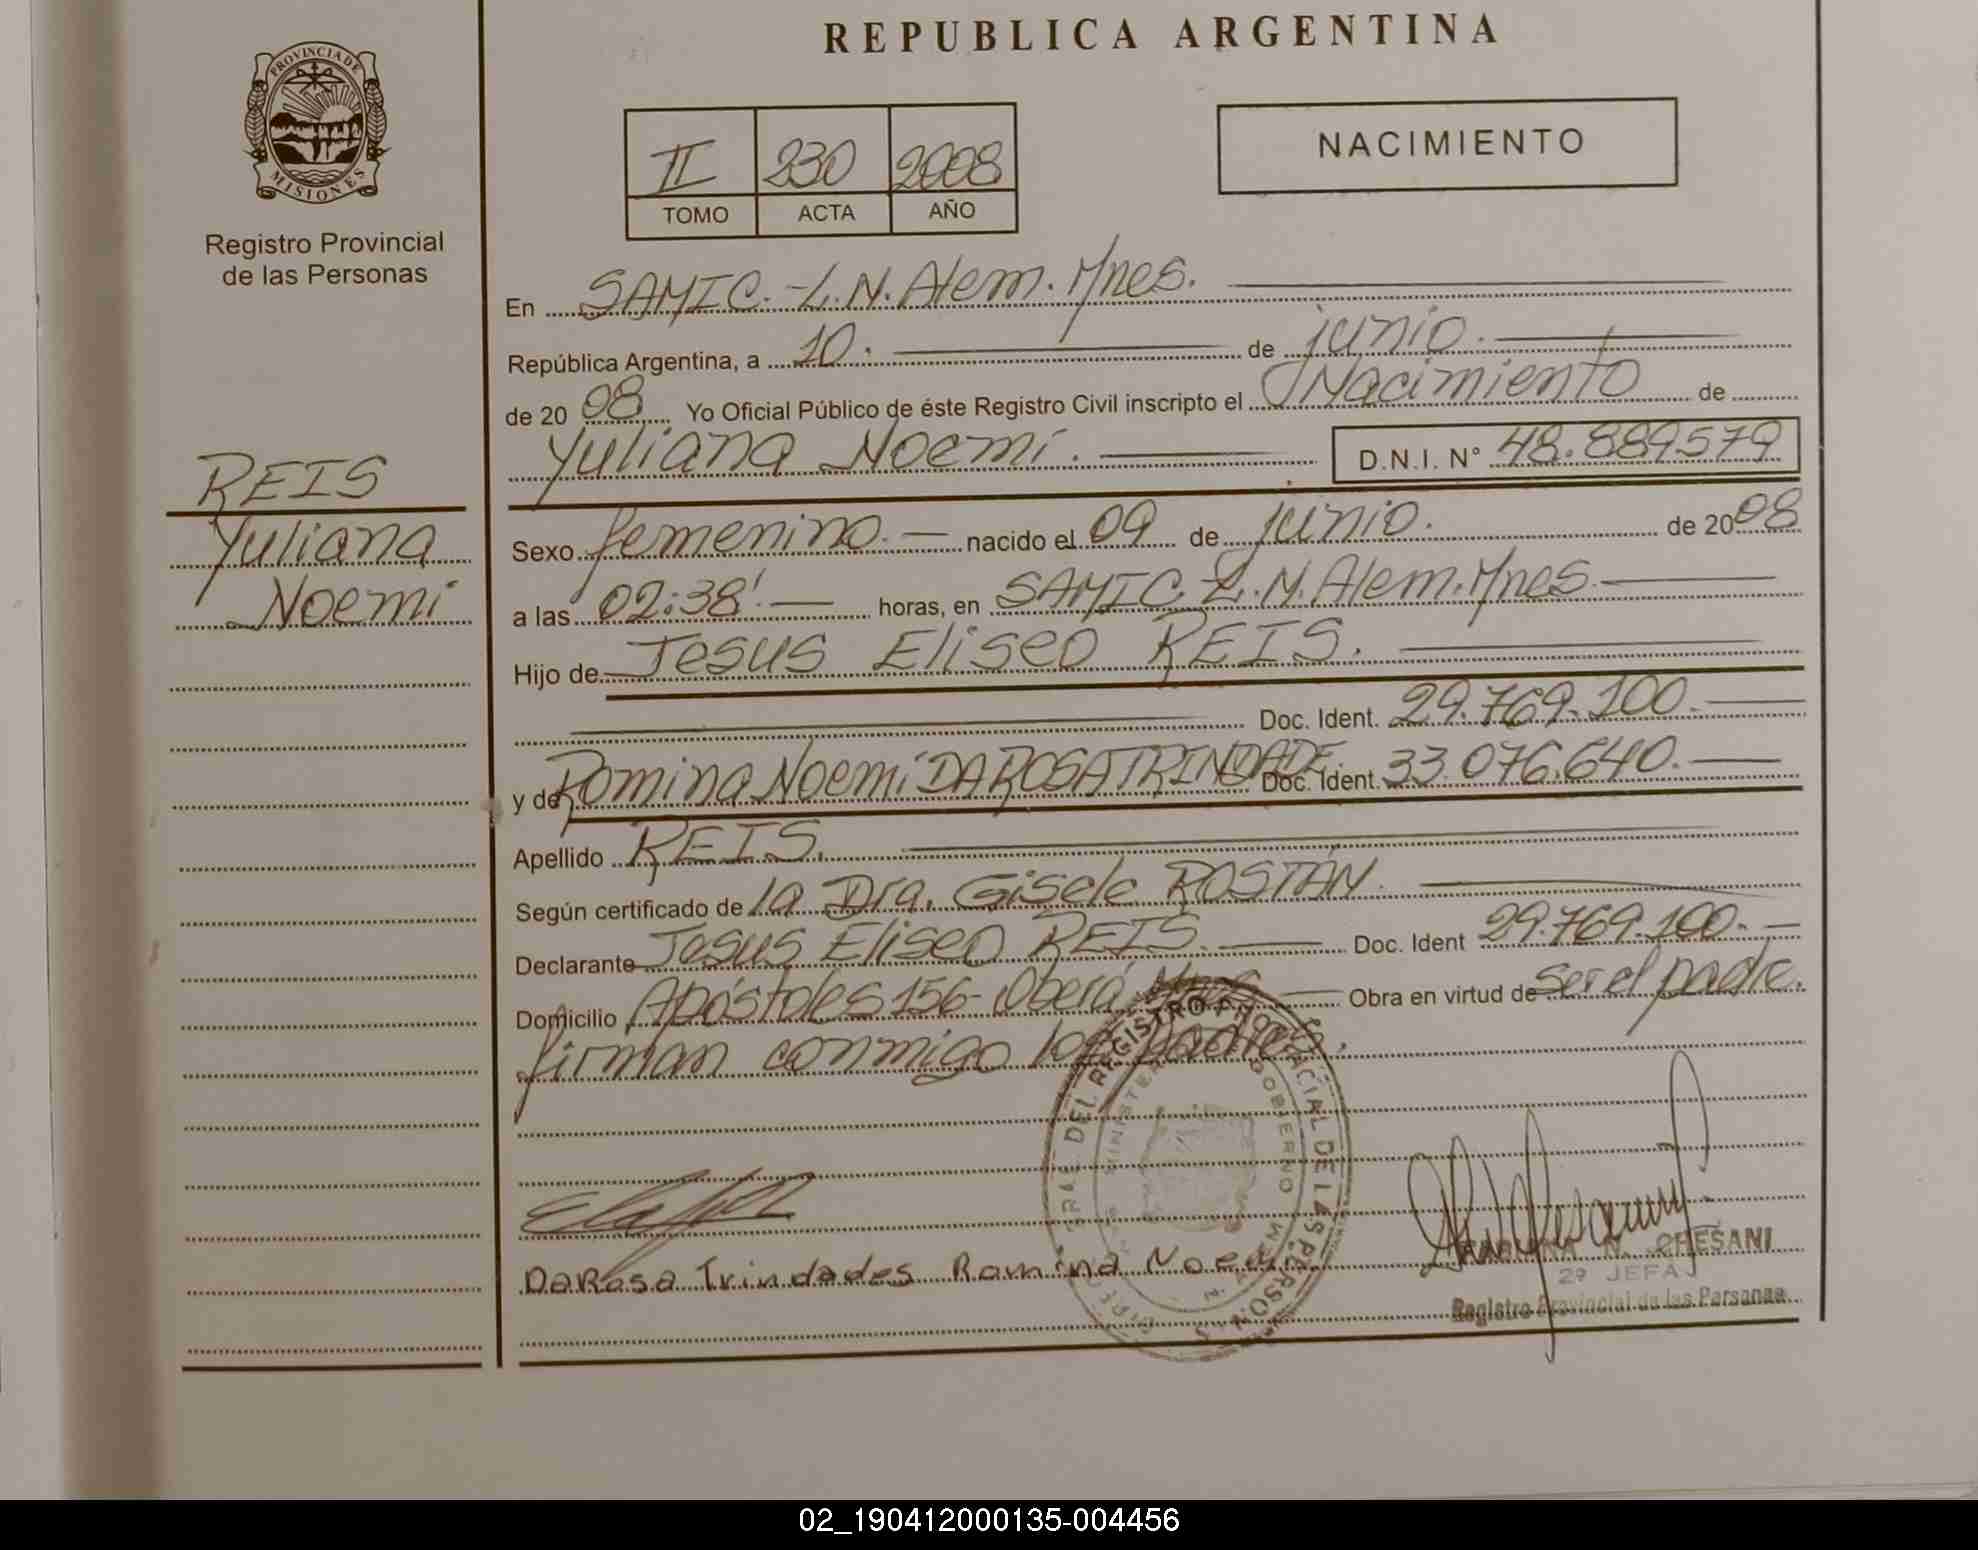 REPUBLICA ARGENTINA
PROVINCIA DE
MISIONES
Registro Provincial
de las Personas
II 230 2008
TOMO ACTA AÑO
NACIMIENTO
En SAMIC.-L.N.Alem.Mnes.
República Argentina, a 10. de junio.
de 20 08 Yo Oficial Público de éste Registro Civil inscripto el Nacimiento de
Yuliana Noemi. D.N.I. N° 48.889579
REIS
Yuliana
Noemi
Sexo femenino. nacido el 09 de junio. de 20 08
a las 02:38'. horas, en SAMIC L.N.Alem.Mnes.
Hijo de Jesus Eliseo REIS.
Doc. Ident. 29.769.100.
y de Romina Noemi DA ROSA TRINDADE. Doc. Ident. 33.076.640.
Apellido REIS.
Según certificado de la Dra. Gisele ROSTÁN.
Declarante Jesus Eliseo REIS. Doc. Ident 29.769.100.
Domicilio Apóstoles 156-Oberá Mnes Obra en virtud de ser el padre.
firman conmigo los padres.
DEL REGISTRO PROVINCIAL DE LAS PERSONAS
MINISTERIO GOBIERNO
DaRosa Trindades Romina Noemi
N. CHESANI
2ª JEFA
Registro Provincial de las Personas
02_190412000135-004456